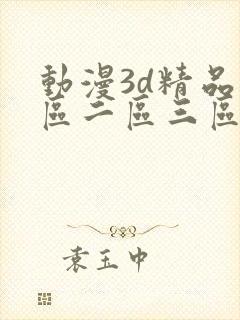 動漫3d精品
區二區三區
袁玉中